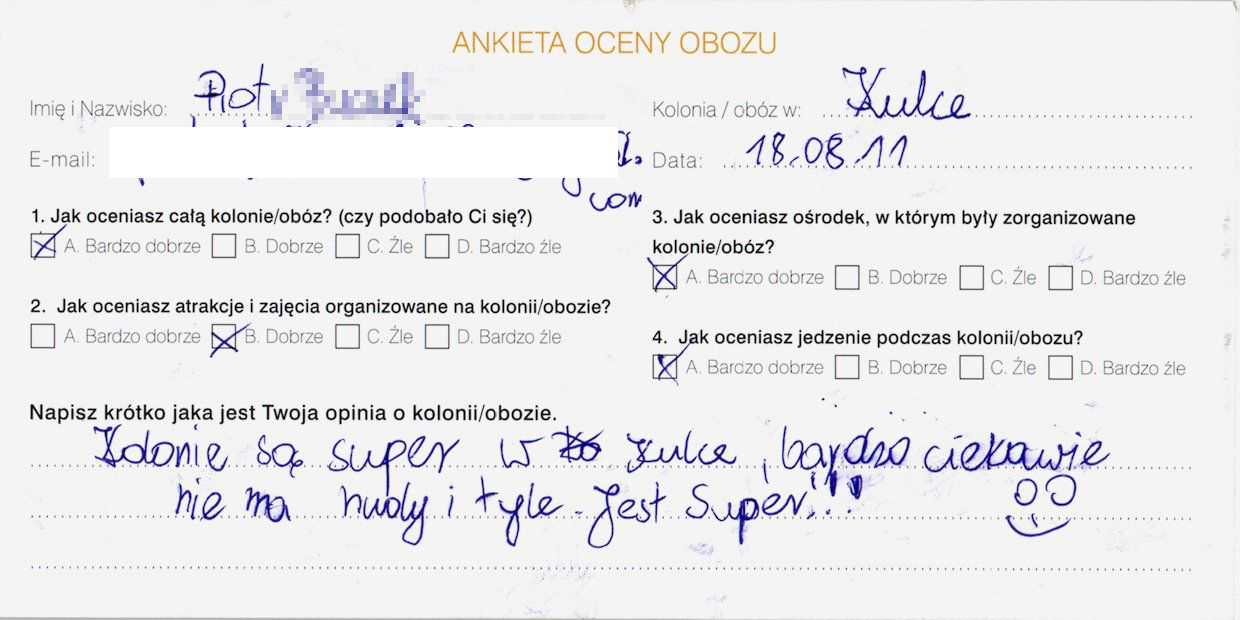 ANKIETA OCENY OBOZU
Imię i Nazwisko: Piotr
Kolonia / obóz w: Kulce
E-mail:
com
Data: 18.08.11
1. Jak oceniasz całą kolonie/obóz? (czy podobało Ci się?)
A. Bardzo dobrze B. Dobrze C. Źle D. Bardzo źle
2. Jak oceniasz atrakcje i zajęcia organizowane na kolonii/obozie?
A. Bardzo dobrze B. Dobrze C. Źle D. Bardzo źle
3. Jak oceniasz ośrodek, w którym były zorganizowane
kolonie/obóz?
A. Bardzo dobrze B. Dobrze C. Źle D. Bardzo źle
4. Jak oceniasz jedzenie podczas kolonii/obozu?
A. Bardzo dobrze B. Dobrze C. Źle D. Bardzo źle
Napisz krótko jaka jest Twoja opinia o kolonii/obozie.
Kolonie są super w Kulce, bardzo ciekawie
nie ma nudy i tyle. Jest Super!!!